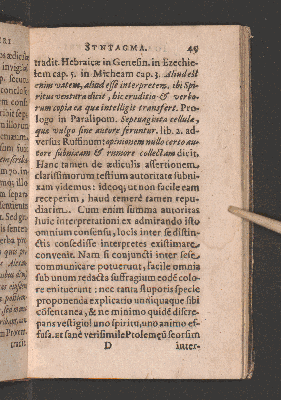 SYNTAGMA. 49
tradit. Hebraicæ in Genesin. in Ezechie-
lem cap. 5. in Micheam cap. 3. Aliud est
enim vatem, aliud esse interpretem. ibi Spi-
ritus ventura dicit, hic eruditio & verbo-
rum copia ea quæ intelligit transfert. Pro-
logo in Paralipom. Septuaginta cellulæ,
quæ vulgo sine autore feruntur. lib. 2. ad-
versus Ruffinum: opinionem nullo certo auto-
re subnixam & rumore collectam dicit.
Hanc tamen de ædiculis assertionem
clarissimorum testium autoritate subni-
xam videmus: ideoq; ut non facile eam
receperim, haud temere tamen repu-
diarim. Cum enim summa autoritas
huic interpretationi ex admirando isto
omnium consensu, locis inter se distin-
ctis consedisse interpretes existimare
convenit. Nam si conjuncti inter sese
communicare potuerunt, facile omnia
sub unum redacta suffragium eodē colo-
re enituerunt; nec tanta stuporis specie
proponenda explicatio unđiquaque sibi
cōsentanea, & ne minimo quidē discre-
pans vestigio! uno spiritu, uno animo ef-
fusa. Et sanè verisimile Ptolemęū seorsim
D inter-